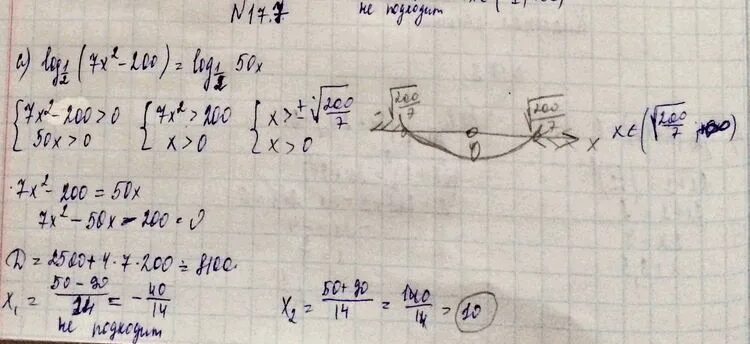 N17.7
не подходит
а) log_{1/2} (7x² - 200) = log_{1/2} 50x
{7x² - 200 > 0 {7x² > 200 {x > ± √(200/7)
{50x > 0 {x > 0 {x > 0
√(200/7) 0 √(200/7) x
x ∈ (√(200/7) ; +∞)
7x² - 200 = 50x
7x² - 50x - 200 = 0
D = 2500 + 4·7·200 = 8100
x₁ = (50 - 90)/14 = - 40/14
не подходит
x₂ = (50 + 90)/14 = 140/14 = 10